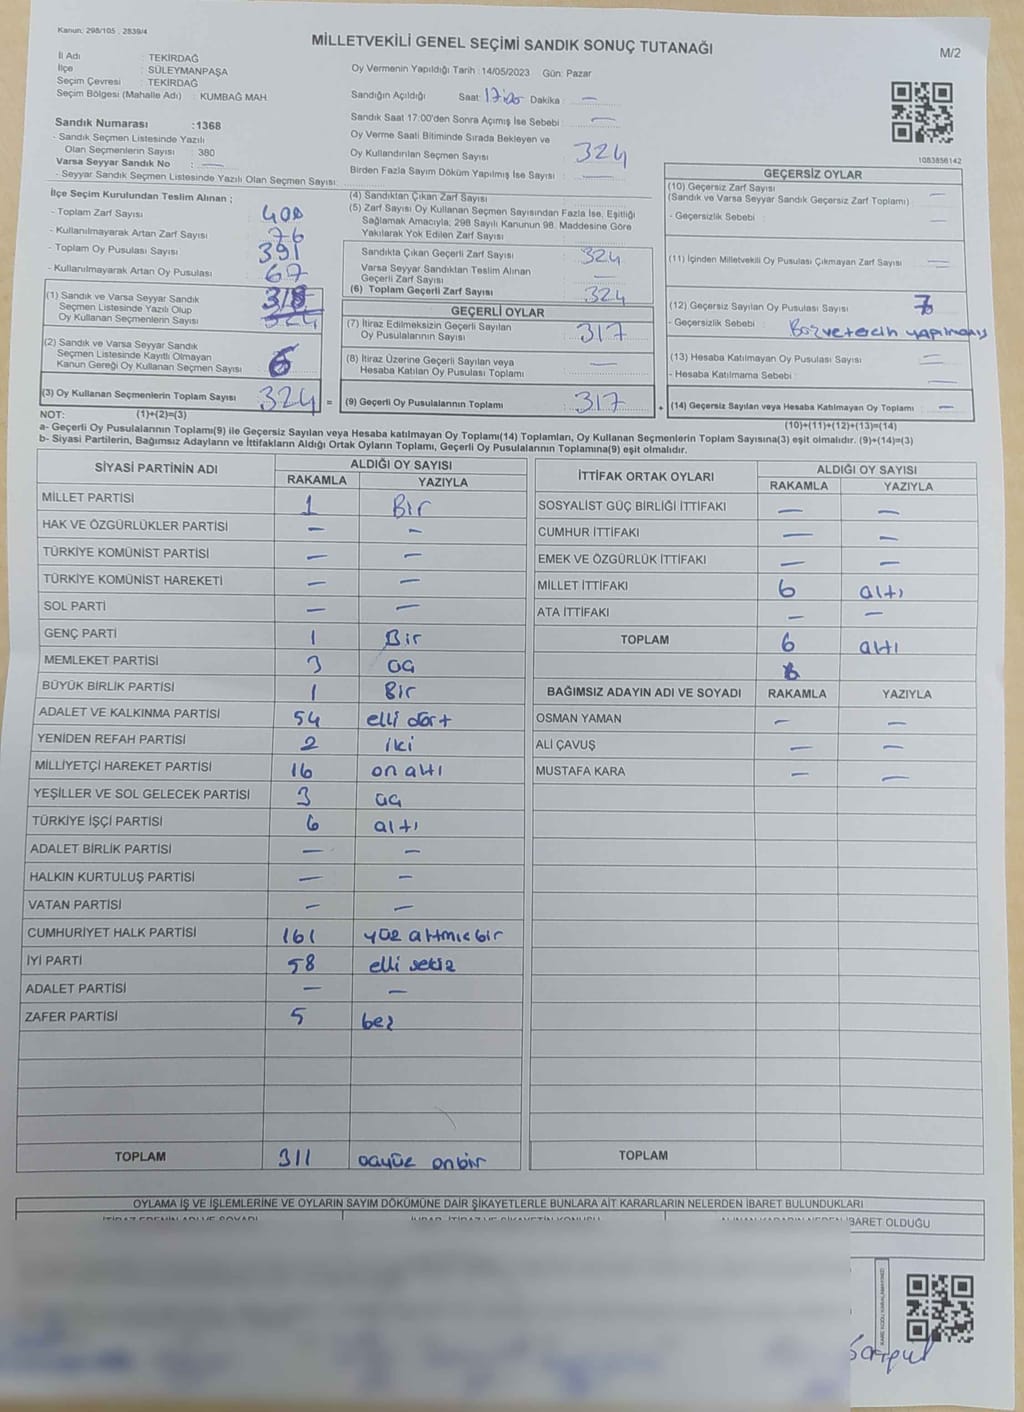 Kanun: 298/105 , 2839/4
MİLLETVEKİLİ GENEL SEÇİMİ SANDIK SONUÇ TUTANAĞI
M/2
İl Adı : TEKİRDAĞ
İlçe : SÜLEYMANPAŞA
Seçim Çevresi : TEKİRDAĞ
Seçim Bölgesi (Mahalle Adı) : KUMBAĞ MAH
Oy Vermenin Yapıldığı Tarih : 14/05/2023 Gün: Pazar
Sandığın Açıldığı Saat: 17:00 Dakika : —
Sandık Saat 17:00'den Sonra Açımış İse Sebebi : —
Oy Verme Saati Bitiminde Sırada Bekleyen ve
Oy Kullandırılan Seçmen Sayısı 324
Birden Fazla Sayım Döküm Yapılmış İse Sayısı : —
Sandık Numarası :1368
- Sandık Seçmen Listesinde Yazılı
Olan Seçmenlerin Sayısı : 380
Varsa Seyyar Sandık No : —
- Seyyar Sandık Seçmen Listesinde Yazılı Olan Seçmen Sayısı:
1083856142
İlçe Seçim Kurulundan Teslim Alınan ;
- Toplam Zarf Sayısı 400
- Kullanılmayarak Artan Zarf Sayısı : 76
- Toplam Oy Pusulası Sayısı 391
- Kullanılmayarak Artan Oy Pusulası : 67
(1) Sandık ve Varsa Seyyar Sandık
Seçmen Listesinde Yazılı Olup
Oy Kullanan Seçmenlerin Sayısı 318
(2) Sandık ve Varsa Seyyar Sandık
Seçmen Listesinde Kayıtlı Olmayan
Kanun Gereği Oy Kullanan Seçmen Sayısı 6
(3) Oy Kullanan Seçmenlerin Toplam Sayısı 324 =
NOT: (1)+(2)=(3)
(4) Sandıktan Çıkan Zarf Sayısı
(5) Zarf Sayısı Oy Kullanan Seçmen Sayısından Fazla İse, Eşitliği
Sağlamak Amacıyla, 298 Sayılı Kanunun 98. Maddesine Göre
Yakılarak Yok Edilen Zarf Sayısı
Sandıkta Çıkan Geçerli Zarf Sayısı : 324
Varsa Seyyar Sandıktan Teslim Alınan
Geçerli Zarf Sayısı —
(6) Toplam Geçerli Zarf Sayısı : 324
GEÇERLİ OYLAR
(7) İtiraz Edilmeksizin Geçerli Sayılan
Oy Pusulalarının Sayısı : 317
(8) İtiraz Üzerine Geçerli Sayılan veya
Hesaba Katılan Oy Pusulası Toplamı —
(9) Geçerli Oy Pusulalarının Toplamı : 317 +
GEÇERSİZ OYLAR
(10) Geçersiz Zarf Sayısı : —
(Sandık ve Varsa Seyyar Sandık Geçersiz Zarf Toplamı)
- Geçersizlik Sebebi : —
(11) İçinden Milletvekili Oy Pusulası Çıkmayan Zarf Sayısı : —
(12) Geçersiz Sayılan Oy Pusulası Sayısı : 7
- Geçersizlik Sebebi :
(13) Hesaba Katılmayan Oy Pusulası Sayısı : —
- Hesaba Katılmama Sebebi : —
(14) Geçersiz Sayılan veya Hesaba Katılmayan Oy Toplamı : —
(10)+(11)+(12)+(13)=(14)
a- Geçerli Oy Pusulalarının Toplamı(9) ile Geçersiz Sayılan veya Hesaba katılmayan Oy Toplamı(14) Toplamları, Oy Kullanan Seçmenlerin Toplam Sayısına(3) eşit olmalıdır. (9)+(14)=(3)
b- Siyasi Partilerin, Bağımsız Adayların ve İttifakların Aldığı Ortak Oyların Toplamı, Geçerli Oy Pusulalarının Toplamına(9) eşit olmalıdır.
SİYASİ PARTİNİN ADI ALDIĞI OY SAYISI
RAKAMLA YAZIYLA
MİLLET PARTİSİ 1 Bir
HAK VE ÖZGÜRLÜKLER PARTİSİ — —
TÜRKİYE KOMÜNİST PARTİSİ — —
TÜRKİYE KOMÜNİST HAREKETİ — —
SOL PARTİ — —
GENÇ PARTİ 1 Bir
MEMLEKET PARTİSİ 3 üç
BÜYÜK BİRLİK PARTİSİ 1 Bir
ADALET VE KALKINMA PARTİSİ 54 elli dört
YENİDEN REFAH PARTİSİ 2 iki
MİLLİYETÇİ HAREKET PARTİSİ 16 on altı
YEŞİLLER VE SOL GELECEK PARTİSİ 3 üç
TÜRKİYE İŞÇİ PARTİSİ 6 altı
ADALET BİRLİK PARTİSİ — —
HALKIN KURTULUŞ PARTİSİ — —
VATAN PARTİSİ — —
CUMHURİYET HALK PARTİSİ 161 yüz altmış bir
İYİ PARTİ 58 elli sekiz
ADALET PARTİSİ — —
ZAFER PARTİSİ 5 beş
TOPLAM 311 üçyüz onbir
İTTİFAK ORTAK OYLARI ALDIĞI OY SAYISI
RAKAMLA YAZIYLA
SOSYALİST GÜÇ BİRLİĞİ İTTİFAKI — —
CUMHUR İTTİFAKI — —
EMEK VE ÖZGÜRLÜK İTTİFAKI — —
MİLLET İTTİFAKI 6 altı
ATA İTTİFAKI — —
TOPLAM 6 altı
BAĞIMSIZ ADAYIN ADI VE SOYADI RAKAMLA YAZIYLA
OSMAN YAMAN — —
ALİ ÇAVUŞ — —
MUSTAFA KARA — —
TOPLAM
OYLAMA İŞ VE İŞLEMLERİNE VE OYLARIN SAYIM DÖKÜMÜNE DAİR ŞİKAYETLERLE BUNLARA AİT KARARLARIN NELERDEN İBARET BULUNDUKLARI
İBARET OLDUĞU